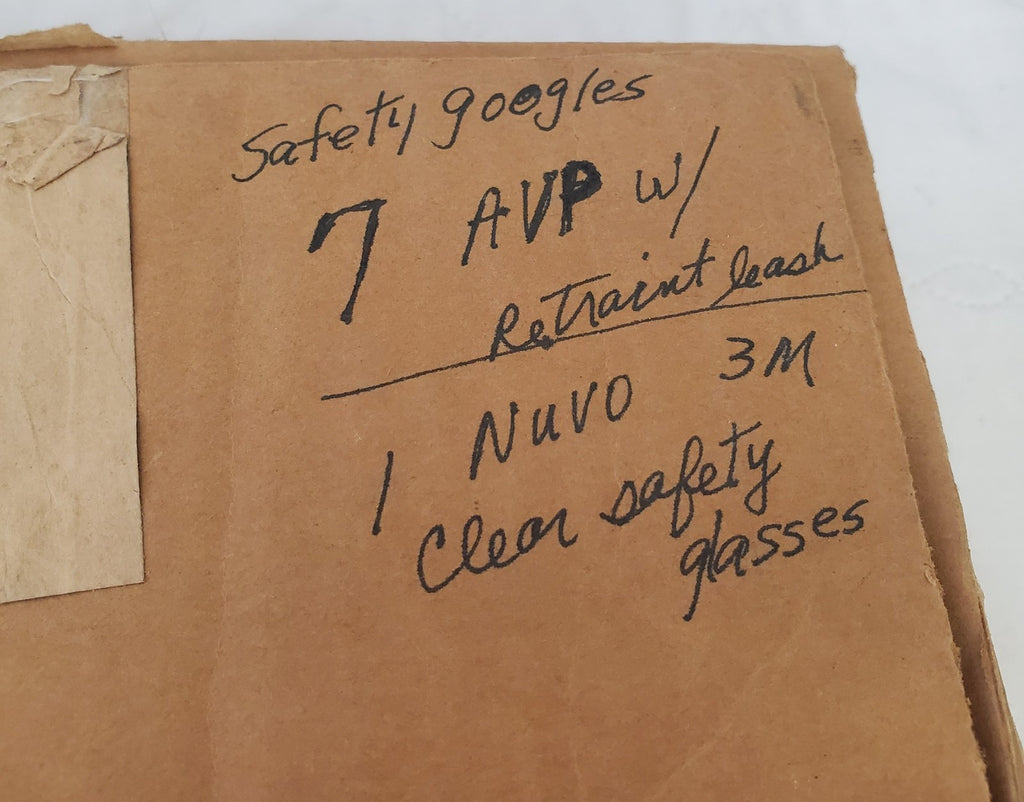 Safety googles
7 AVP w/
Retraint leash
1 NUVO 3M
Clear safety
glasses